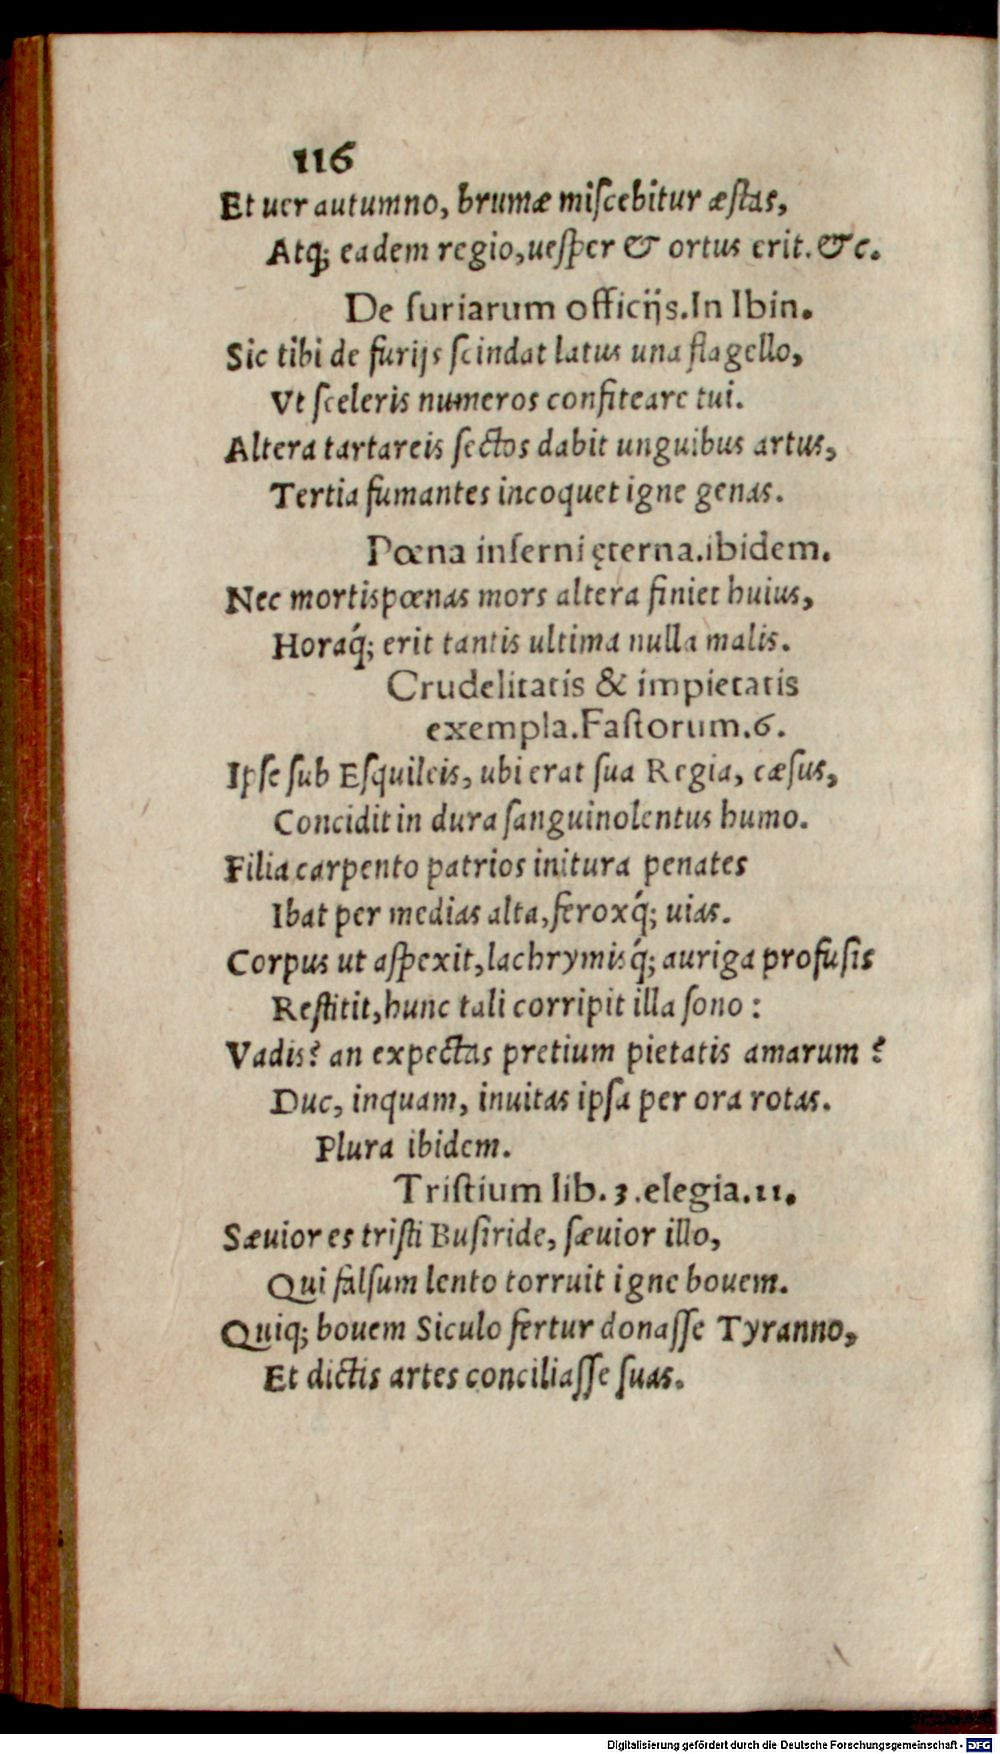 116
Et uer autumno, brumæ miſcebitur æſtas,
Atq; eadem regio, ueſper & ortus erit. &c.
De furiarum officijs. In Ibin.
Sic tibi de furijs ſcindat latus una flagello,
Vt ſceleris numeros confiteare tui.
Altera tartareis ſectos dabit unguibus artus,
Tertia fumantes incoquet igne genas.
Pœna inferni ęterna. ibidem.
Nec mortis pœnas mors altera finiet huius,
Horaq́; erit tantis ultima nulla malis.
Crudelitatis & impietatis
exempla. Faſtorum. 6.
Ipſe ſub Eſquileis, ubi erat ſua Regia, cæſus,
Concidit in dura ſanguinolentus humo.
Filia carpento patrios initura penates
Ibat per medias alta, feroxq́; uias.
Corpus ut aſpexit, lachrymisq́; auriga profuſis
Reſtitit, hunc tali corripit illa ſono:
Vadis? an expectas pretium pietatis amarum?
Duc, inquam, inuitas ipſa per ora rotas.
Plura ibidem.
Triſtium lib. 3. elegia. 11.
Sæuior es triſti Buſiride, ſæuior illo,
Qui falſum lento torruit igne bouem.
Quiq; bouem Siculo fertur donaſſe Tyranno,
Et dictis artes conciliaſſe ſuas.
Digitalisierung gefördert durch die Deutsche Forschungsgemeinschaft - DFG